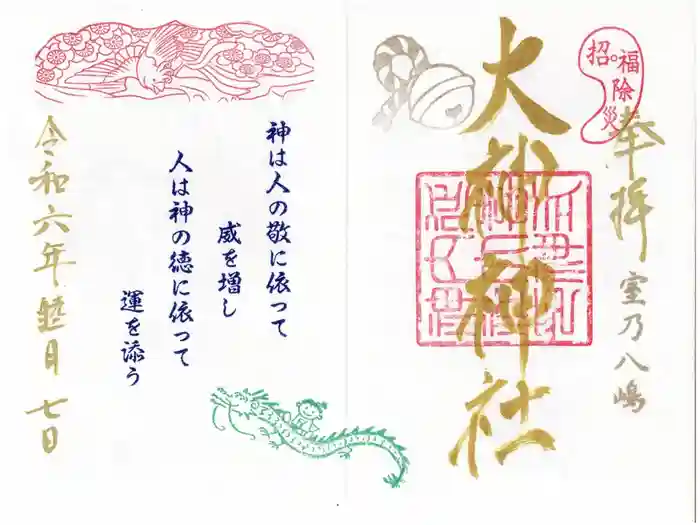 奉拝
室乃八嶋
招福除災
大神神社
神は人の敬に依って
威を増し
人は神の徳に依って
運を添う
令和六年睦月七日